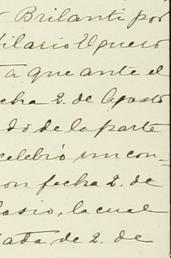 Brilanti por
ilario Elguero
a que ante el
cha 2. de Agosto
do de la parte
celebró un con-
on fecha 2. de
asio, la cual
ada de 2. de